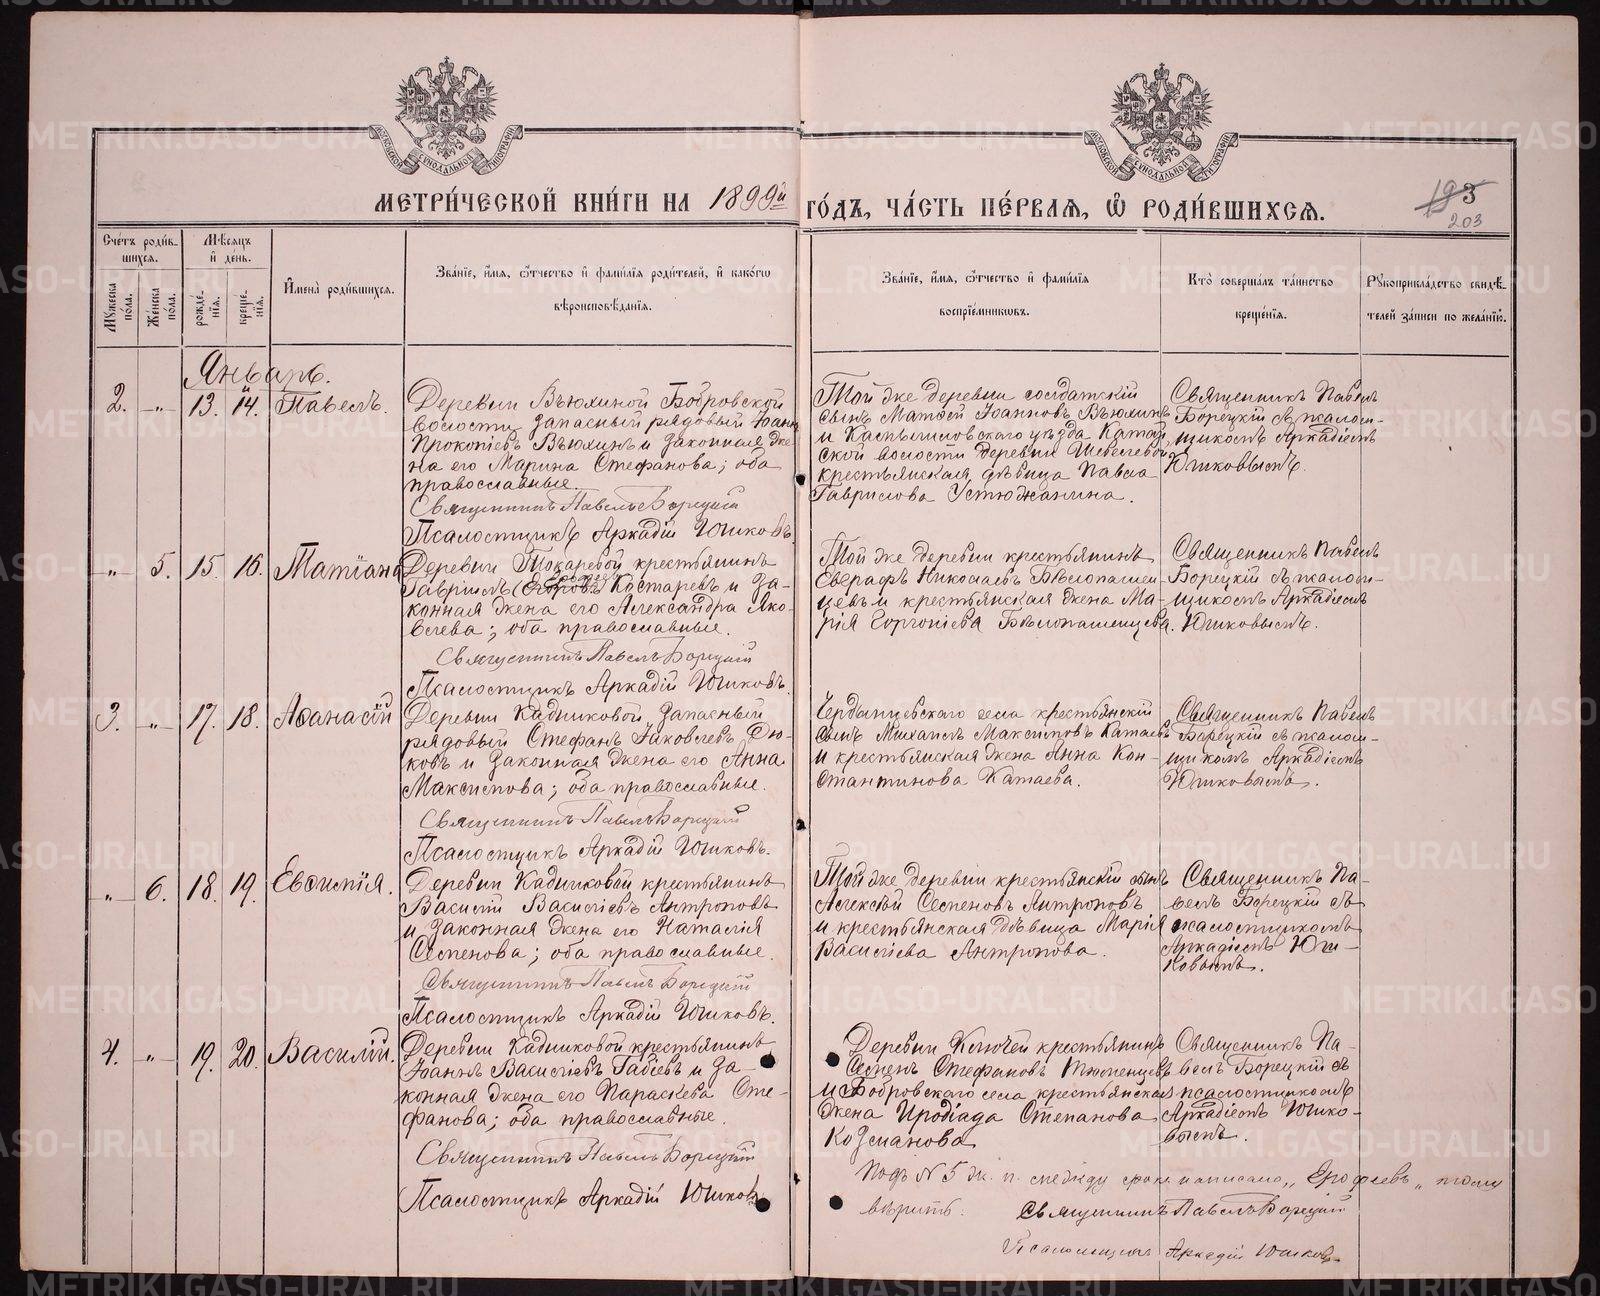 МОСКОВСКОЙ СѴНОДАЛЬНОЙ ТИПОГРАФІИ
МОСКОВСКОЙ СѴНОДАЛЬНОЙ ТИПОГРАФІИ
МЕТРИ́ЧЕСКОЙ КНИ́ГИ НА 1899й ГО́ДЪ, ЧА́СТЬ ПЕ́РВАѦ, Ѡ҆ РОДИ́ВШИХСѦ.
193
203
Сче́тъ роди́в-
шихсѧ.
Мꙋ́жеска по́ла.
Же́нска по́ла.
Мѣ́сѧцъ
и҆ де́нь.
рожде́-нїѧ.
креще́-нїѧ.
И҆мена̀ роди́вшихсѧ.
Зва́нїе, и҆́мѧ, ѻ҆́тчество и҆ фами́лїѧ роди́телей, и҆ како́гѡ
вѣроисповѣ́данїѧ.
Зва́нїе, и҆́мѧ, ѻ҆́тчество и҆ фами́лїѧ
воспрїе́мникѡвъ.
Кто̀ соверша́лъ та́инство
креще́нїѧ.
Рꙋкоприкла́дство свидѣ́-
телей за́писи по жела́нїю.
Январь.
2. -„- 13. 14. Павелъ.
Деревни Вьюхиной Бобровской
волости запасный рядовый Іоаннъ
Прокопіевъ Вьюхинъ и законная же-
на его Марина Стефанова; оба
православные.
Священникъ Павелъ Борецкій
Псаломщикъ Аркадій Юшковъ.
Той же деревни солдатскій
сынъ Матвѣй Іоанновъ Вьюхинъ
и Камышловскаго уѣзда
ской волости деревни
крестьянская дѣвица Павла
Гаврилова Устюжанина.
Священникъ Павелъ
Борецкій съ псалом-
щикомъ Аркадіемъ
Юшковымъ.
-„- 5. 15. 16. Татіана
Деревни Токаревой крестьянинъ
Гавріилъ Костаревъ и за-
конная жена его Александра Яко-
влева; оба православные.
Священникъ Павелъ Борецкій
Псаломщикъ Аркадій Юшковъ.
Той же деревни крестьянинъ
Евграфъ Николаевъ Бѣлопашен-
цевъ и крестьянская жена Ма-
рія Горгоніева Бѣлопашенцева.
Священникъ Павелъ
Борецкій съ псалом-
щикомъ Аркадіемъ
Юшковымъ.
3. -„- 17. 18. Аѳанасій
Деревни Кадниковой запасный
рядовый Стефанъ Іаковлевъ Дю-
ковъ и законная жена его Анна
Максимова; оба православные.
Священникъ Павелъ Борецкій
Псаломщикъ Аркадій Юшковъ.
Черданцевскаго села крестьянскій
сынъ Михаилъ Максимовъ Катаевъ
и крестьянская жена Анна Кон-
стантинова Катаева.
Священникъ Павелъ
Борецкій съ псалом-
щикомъ Аркадіемъ
Юшковымъ.
-„- 6. 18. 19. Евѳимія.
Деревни Кадниковой крестьянинъ
Василій Василіевъ Антроповъ
и законная жена его Наталія
Семенова; оба православные.
Священникъ Павелъ Борецкій
Псаломщикъ Аркадій Юшковъ.
Той же деревни крестьянскій сынъ
Алексѣй Семеновъ Антроповъ
и крестьянская дѣвица Марія
Василіева Антропова.
Священникъ Па-
велъ Борецкій съ
псаломщикомъ
Аркадіемъ Юш-
ковымъ.
4. -„- 19. 20. Василій.
Деревни Кадниковой крестьянинъ
Іоаннъ Василіевъ Гадіевъ и за-
конная жена его Параскева Сте-
фанова; оба православные.
Священникъ Павелъ Борецкій
Псаломщикъ Аркадій Юшковъ.
Деревни Ключей крестьянинъ
Семенъ Стефановъ Тюменцевъ
и Бобровскаго села крестьянская
жена Иродіада Степанова
Козманова
Священникъ Па-
велъ Борецкій съ
псаломщикомъ
Аркадіемъ Юшко-
вымъ.
Подъ № 5 ж. п. между строк. написано „Ерофеевъ„ тому
вѣрить. Священникъ Павелъ Борецкій
Псаломщикъ Аркадій Юшковъ
METRIKI.GASO-URAL.RU